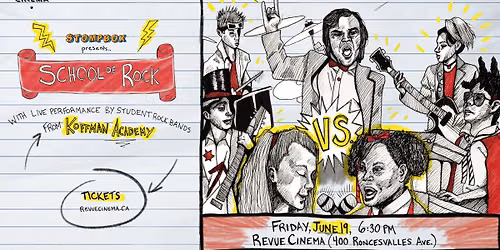 CINEMA
STOMPBOX
presents..
SCHOOL OF ROCK
WITH LIVE PERFORMANCE BY STUDENT ROCK BANDS
FROM KOFFMAN ACADEMY
TICKETS
REVUECINEMA.CA
VS.
FRIDAY, JUNE 19, 6:30 PM
REVUE CINEMA (400 RONCESVALLES AVE.)